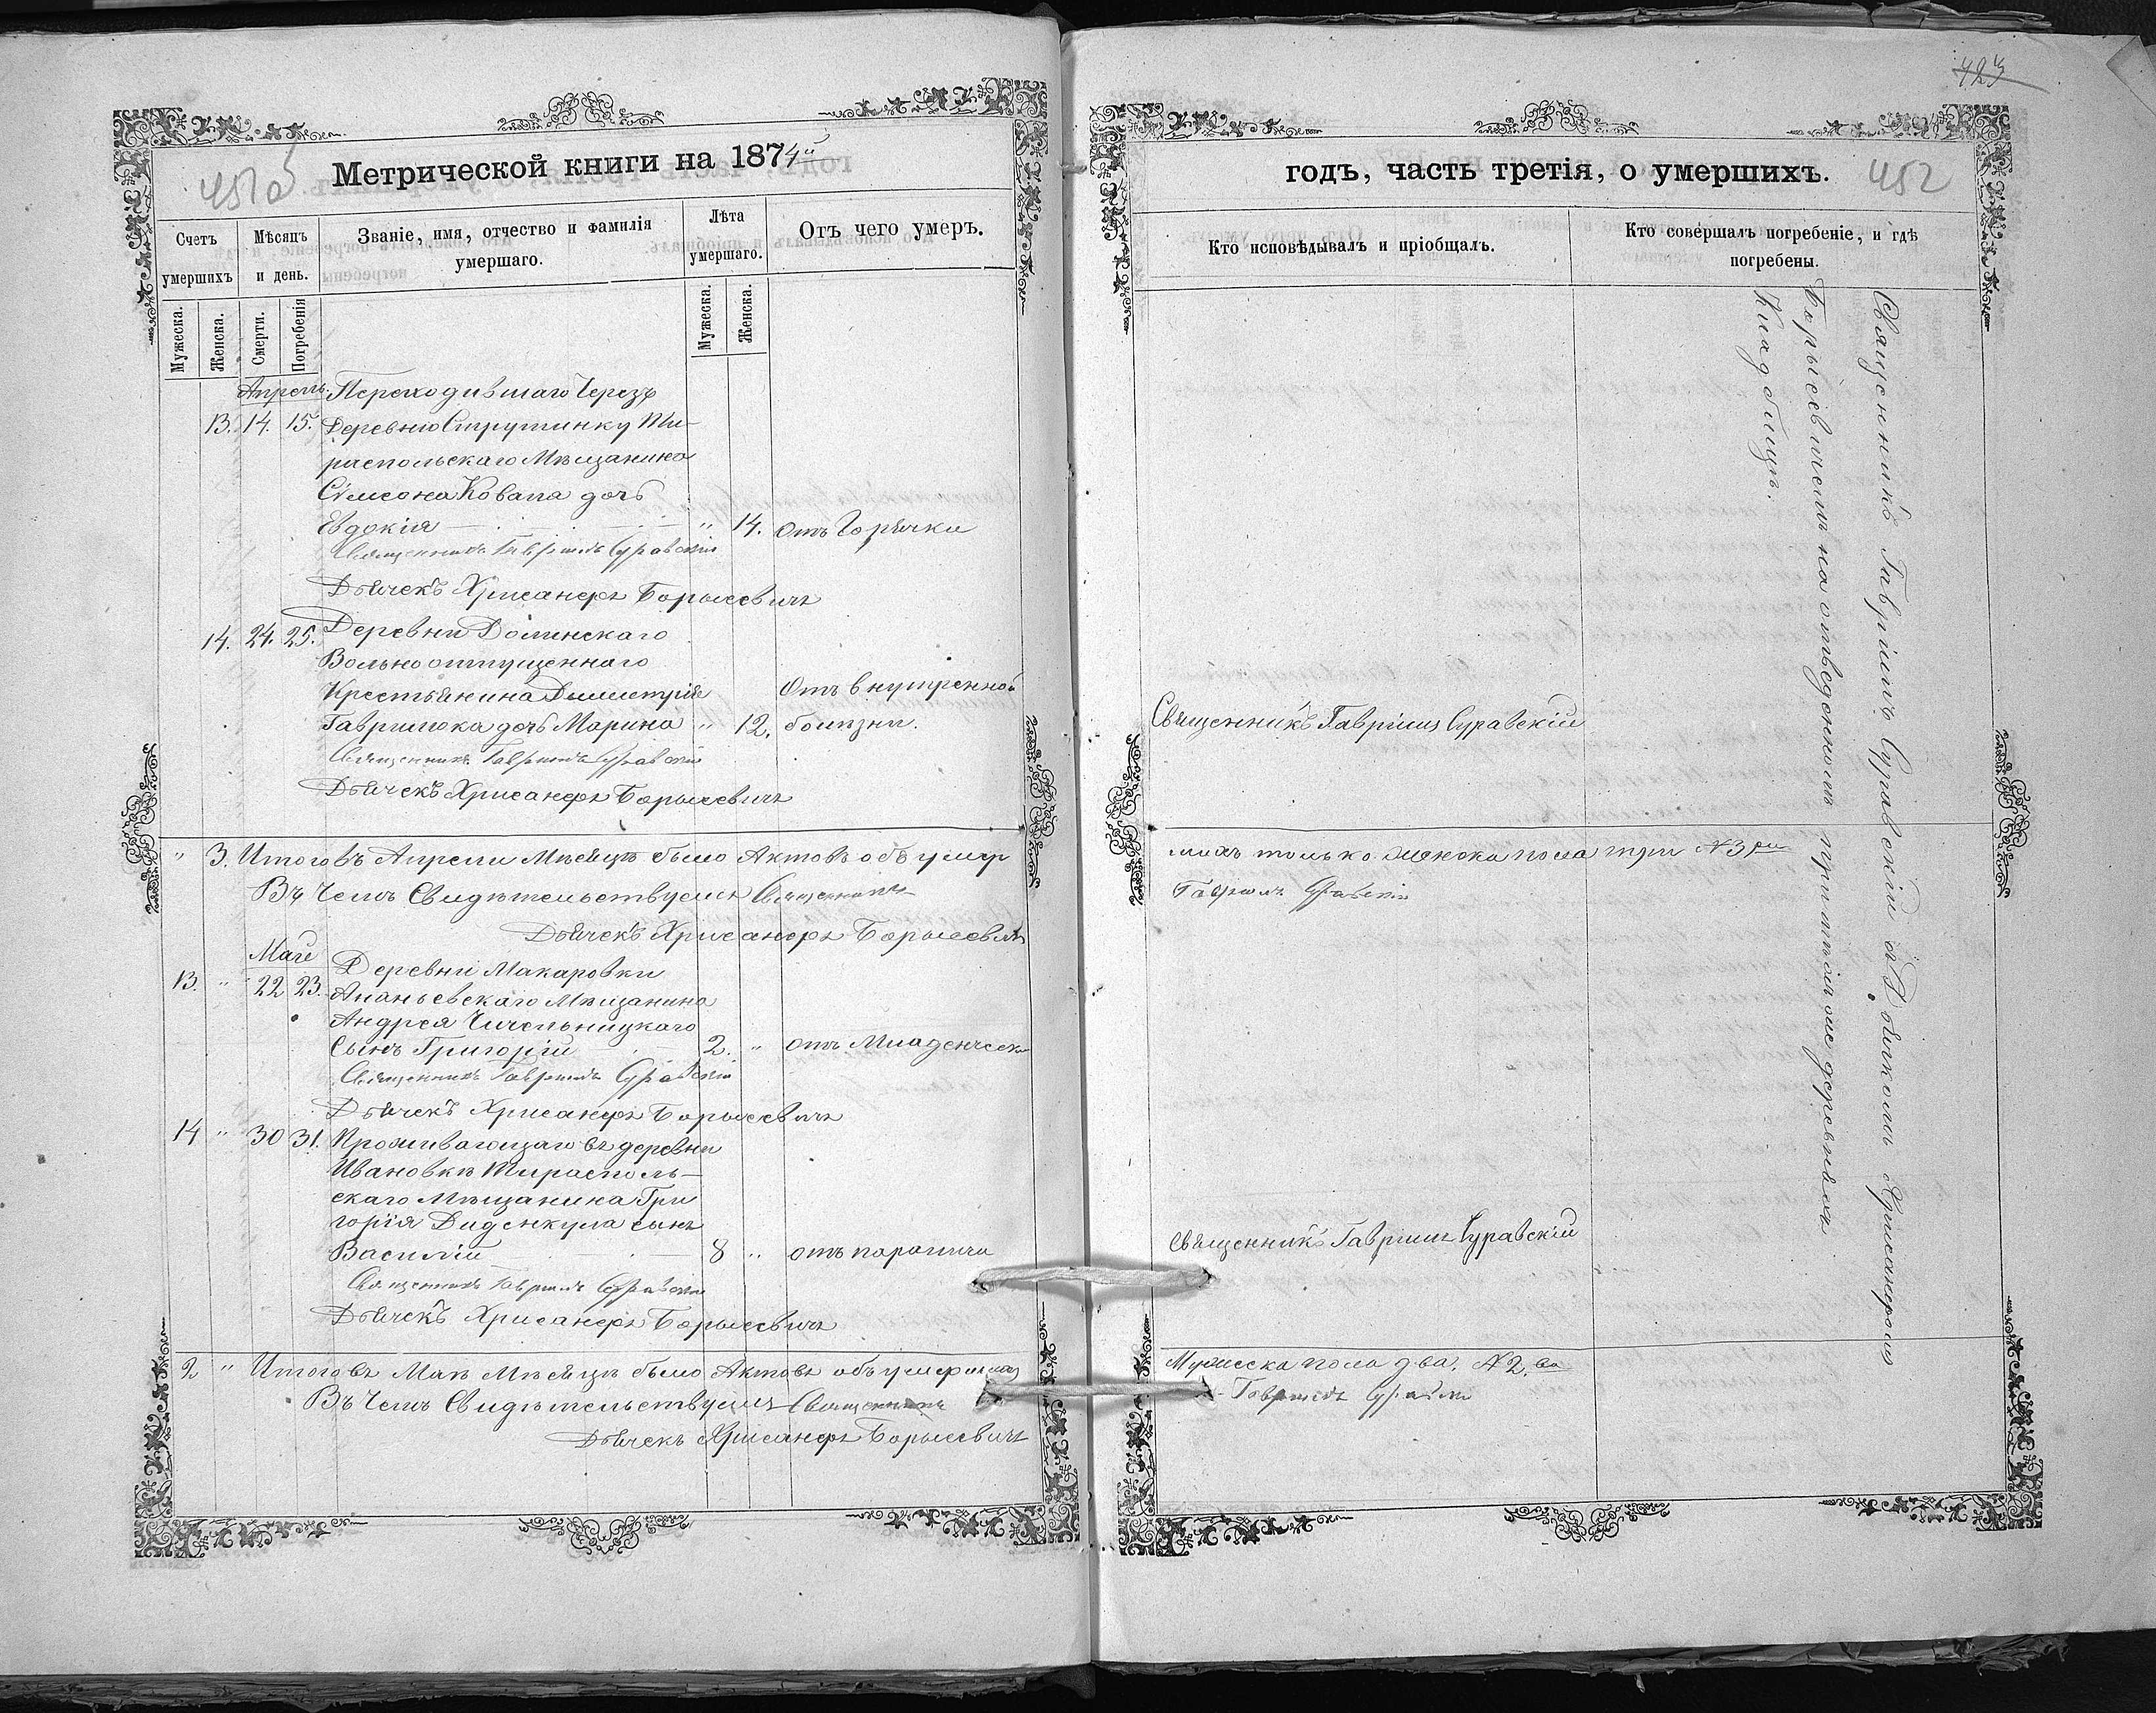 423
451об
Метрической книги на 1874й
Счетъ умершихъ
Мѣсяцъ и день.
Званіе, имя, отчество и фамилія умершаго.
Лѣта умершаго.
Отъ чего умеръ.
Мужеска.
Женска.
Смерти.
Погребенія
Мужеска.
Женска.
Апрель.
Переходившаго Черезъ
13. 14. 15. Деревню Струтинку Ти-
распольскаго Мѣщанина
Симеона Ковала дочь
Евдокія " 14. Отъ Горячки
Священникъ Гавріилъ Суравскій
Дьячекъ Хрисанфъ Борысевичъ
14. 24. 25. Деревни Долинскаго
Вольноотпущеннаго
Крестьянина Димитрія Отъ внутренной
Гаврилюка дочь Марина " 12. болѣзни.
Священникъ Гавріилъ Суравскій
Дьячекъ Хрисанфъ Борысевичъ
" 3. Итого въ Апрели Мѣсяцѣ было Актовъ объ умер
Въ Чемъ Свидѣтельствуемъ Священникъ
Дьячекъ Хрисанфъ Борысевичъ
Маѣ
Деревни Макаровки
13. " 22 23. Ананьевскаго Мѣщанина
Андрея Чичельницкаго
Сынъ Григорій 2. " отъ Младенческ
Священникъ Гавріилъ Суравскій
Дьячекъ Хрисанфъ Борысевичъ
14 " 30 31. Проживающаго въ деревни
Ивановкѣ Тирасполь-
скаго Мѣщанина Гри
горія Диденкула сынъ
Василій 8 " отъ паралича
Священникъ Гавріилъ Суравскій
Дьячекъ Хрисанфъ Борысевичъ
2 " Итого въ Маѣ Мѣсяцѣ было Актовъ объ умершихъ
Въ Чемъ Свидѣтельствуемъ Священникъ
Дьячекъ Хрисанфъ Борысевичъ
годъ, часть третія, о умершихъ.
452
Кто исповѣдывалъ и пріобщалъ.
Кто совершалъ погребеніе, и гдѣ погребены.
Священникъ Гавріилъ Суравскій
шихъ только женска пола три №3ри
Гавріилъ Суравскій
Священникъ Гавріилъ Суравскій
Мужеска пола два. №2.ва
Гавріилъ Суравскій
Священникъ Гавріилъ Суравскій съ Дьячкомъ Хрисанфомъ
Борысевичемъ на отведенномъ при тѣхже деревняхъ
Кладбищѣ.